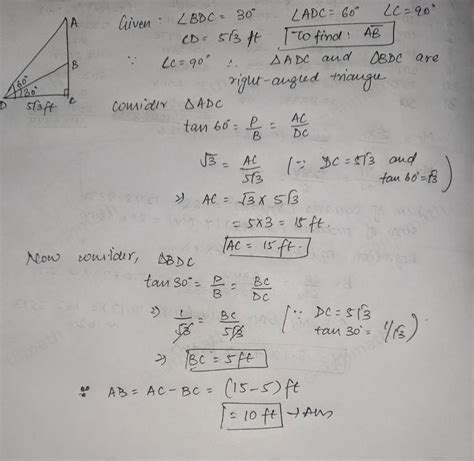 Given : ∠BDC = 30° ∠ADC = 60° ∠C = 90°
CD = 5√3 ft To find : AB
∵ ∠C = 90° ∴ △ADC and △BDC are
right-angled triangle
A
B
C
D
60°
30°
5√3 ft
consider △ADC
tan 60° = P/B = AC/DC
√3 = AC/5√3 (∵ DC = 5√3 and
tan 60° = √3)
⇒ AC = √3 × 5√3
= 5×3 = 15 ft.
AC = 15 ft.
Now consider, △BDC
tan 30° = P/B = BC/DC
⇒ 1/√3 = BC/5√3 (∵ DC = 5√3
tan 30° = 1/√3)
⇒ BC = 5 ft
∴ AB = AC - BC = (15-5) ft
= 10 ft → Ans